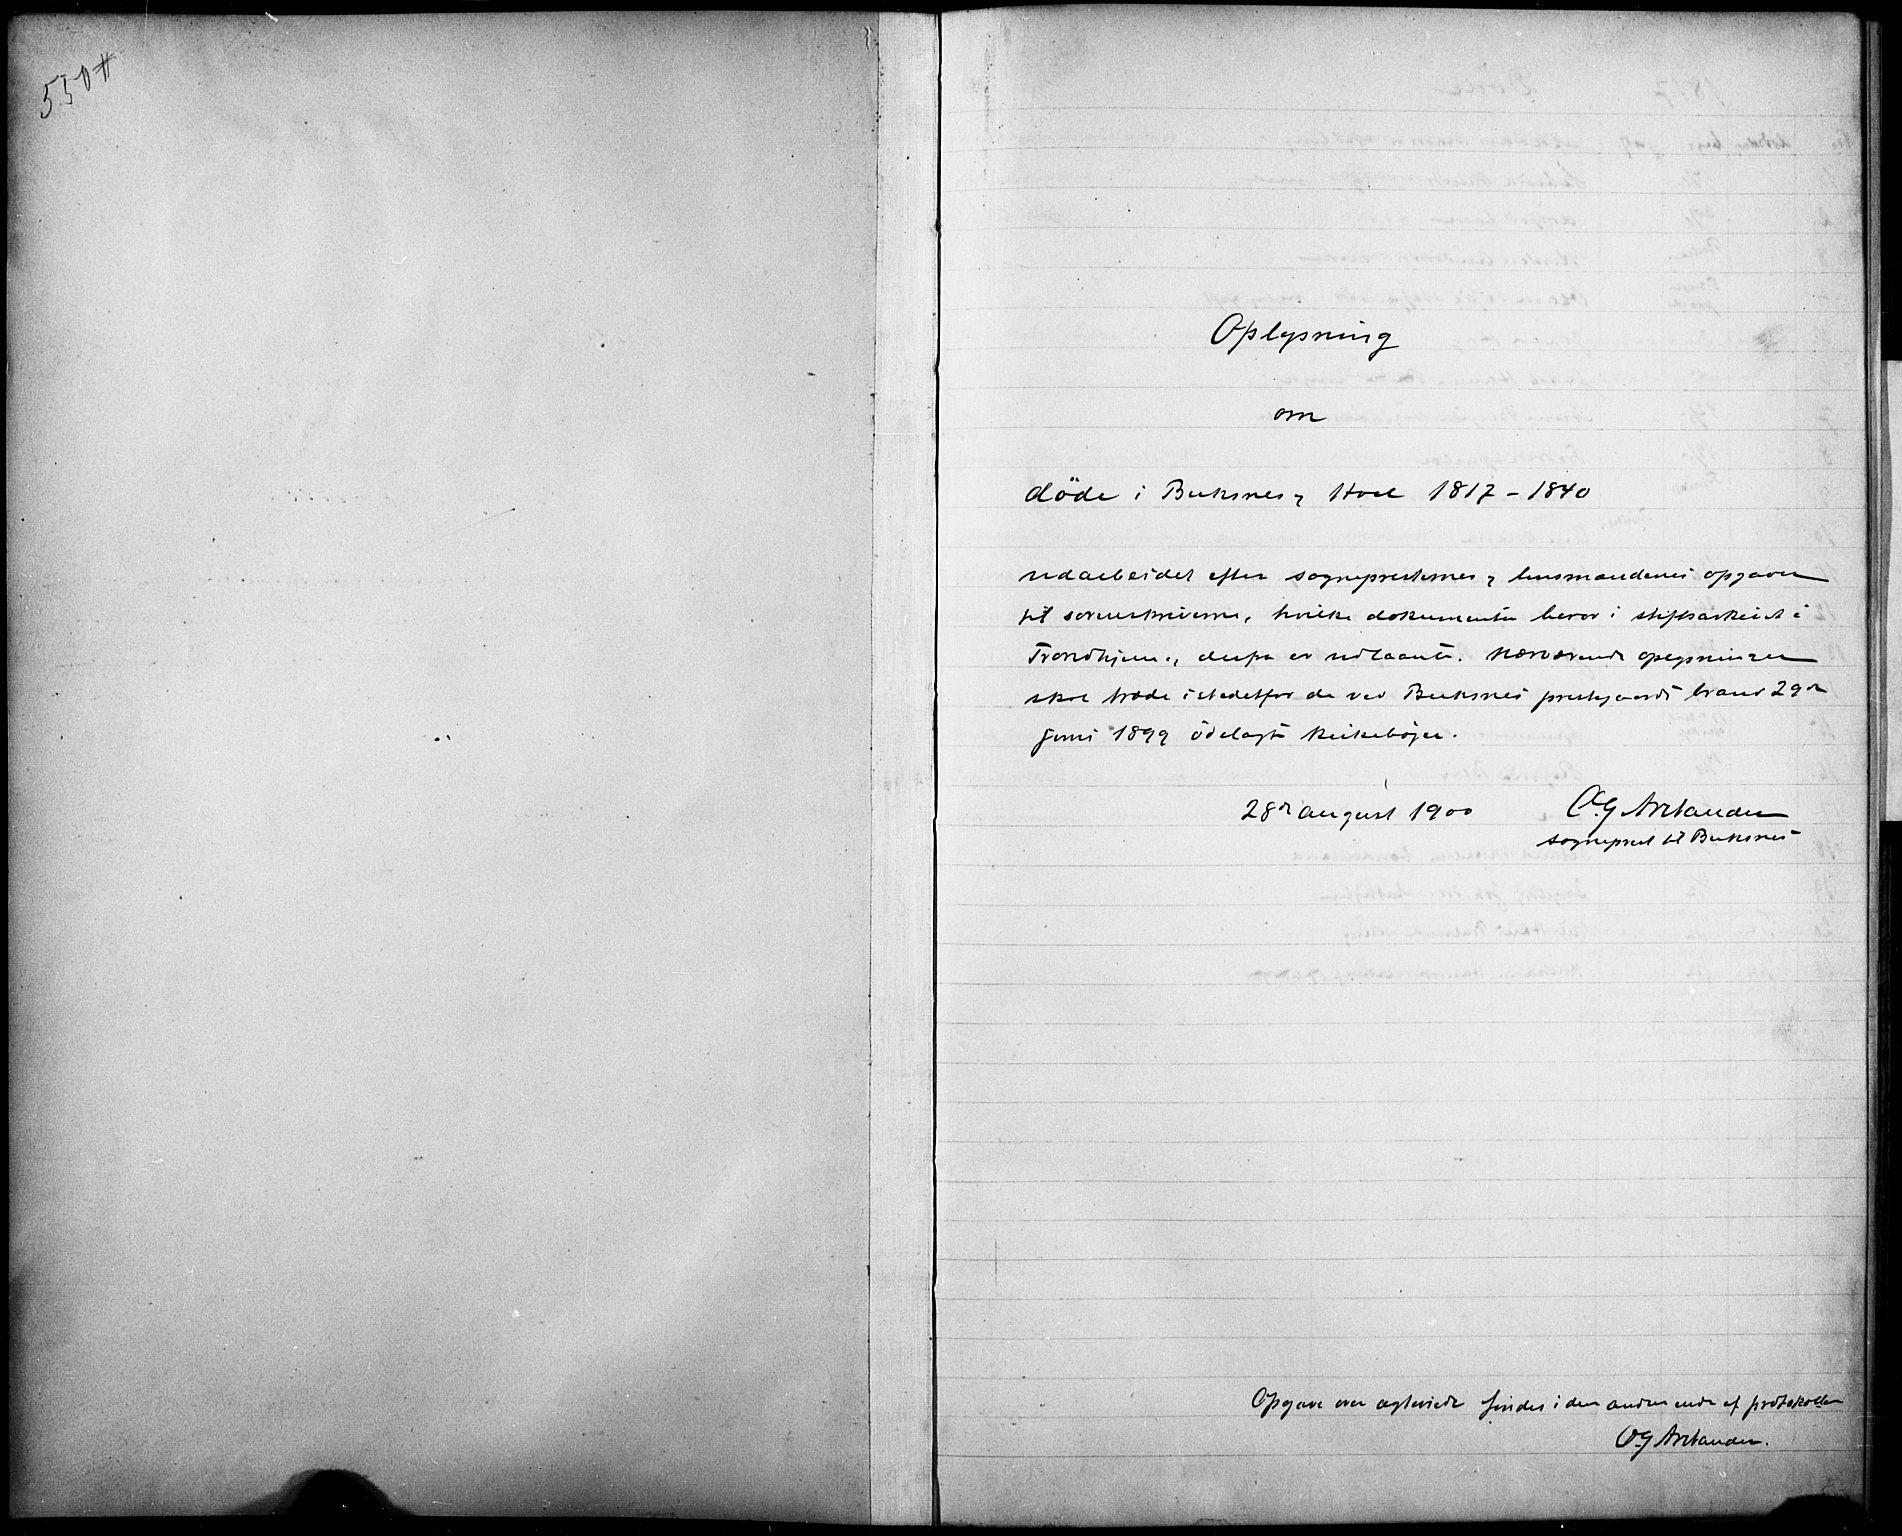 550#
Oplysning
om
døde i Buksnes og Hool 1817 – 1840
udarbeidet efter sognepresternes og lensmændenes opgaver
til sorenskriverne, hvilke dokumenter beror i stiftsarkivet i
Trondhjem og derfra er udlaante. Nærværende oplysninger
skal træde istedetfor de ved Buksnes prestegaards brand 29de
juni 1899 ødelagte kirkebøger.
28de august 1900 O.G Arctander
sogneprest til Buksnes
Opgave over ægteviede findes i den anden ende af protokollen
O.G Arctander.